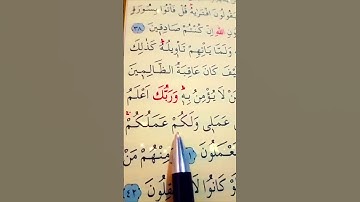 يَقُولُونَ افْتَرٰيهُ قُلْ فَأْتُوا بِسُورَةٍ
اللّٰهِ اِنْ كُنْتُمْ صَادِقٖينَ ﴿٣٨﴾
وَلَمَّا يَاْتِهِمْ تَاْوٖيلُهُ كَذٰلِكَ
كَانَ عَاقِبَةُ الظَّالِمٖينَ
مَنْ لَا يُؤْمِنُ بِهٖ وَرَبُّكَ اَعْلَمُ
عَمَلٖى وَلَكُمْ عَمَلُكُمْ
مِنْهُمْ مَنْ
كَانُوا لَا يَعْقِلُونَ ﴿٤٢﴾